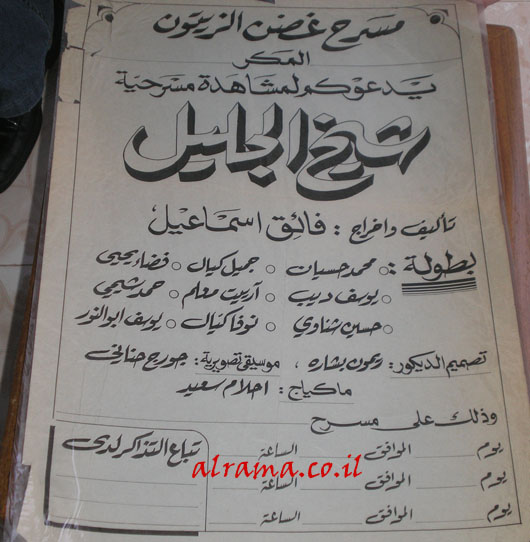 مسرح غصن الزيتون
المكر
يدعوكم لمشاهدة مسرحية
شيخ الجليل
تأليف واخراج : فائق اسماعيل
بطولة : محمد حسيان ○ جميل كيال ○ فضاء يحيى
○ يوسف ديب ○ آرييت معلم ○ حمد شيمي
○ حسين شناوي ○ نوفا كيال ○ يوسف ابو النور
تصميم الديكور : ريمون بشاره ، موسيقى تصويرية : جورج
ماكياج : احلام سعيد
وذلك على مسرح
يوم الموافق الساعة
يوم الموافق الساعة
يوم الموافق الساعة
تباع التذاكر لدى
alrama.co.il